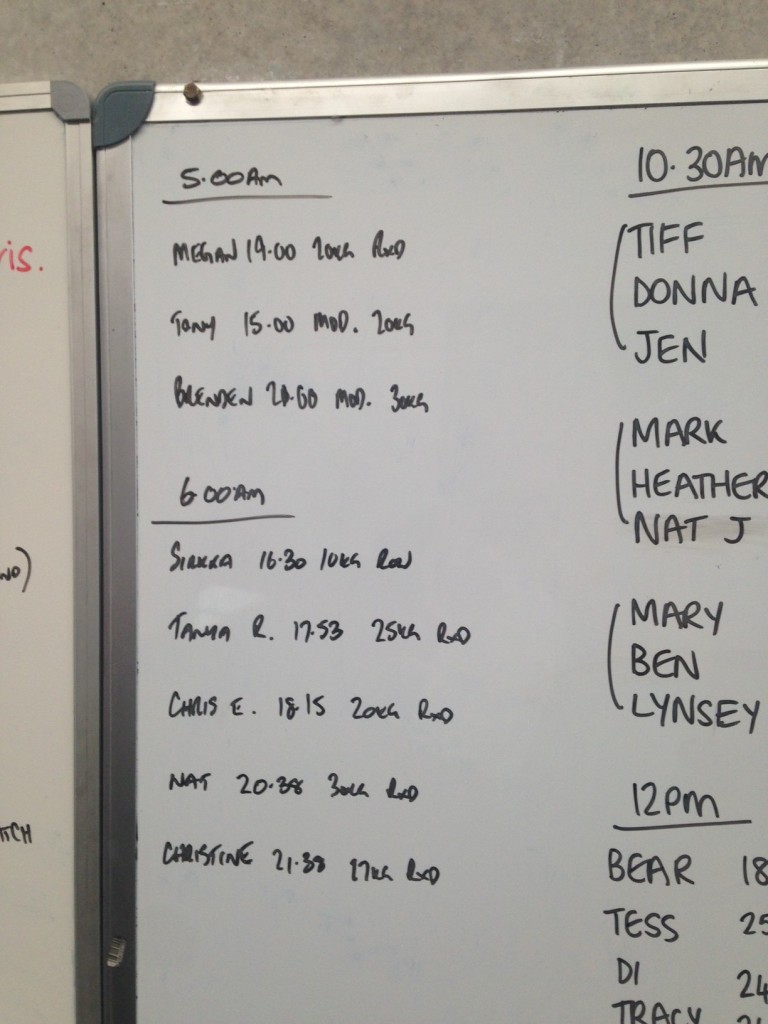 ris.
NO)
TCH
5.00AM
MEGAN 19.00 20KG RxD
TONY 15.00 MOD. 20KG
BRENDEN MOD. 30KG
6.00AM
16.30 10KG
TANYA R. 17.53 25KG RxD
CHRIS E. 18.15 20KG RxD
NAT 20.38 30KG RxD
CHRISTINE 21.38 17KG RxD
10.30AM
TIFF
DONNA
JEN
MARK
HEATHER
NAT J
MARY
BEN
LYNSEY
12PM
BEAR 18
TESS 25
DI 24
TRACY